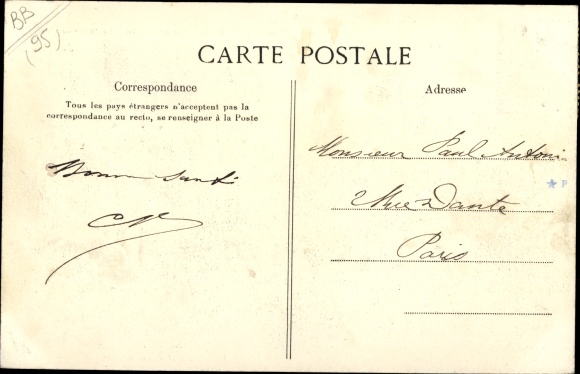 BB
(95)
CARTE POSTALE
Correspondance
Tous les pays étrangers n'acceptent pas la
correspondance au recto, se renseigner à la Poste
Bonne Santé
Adresse
Monsieur Paul Antoni
2 Rue Dante
Paris